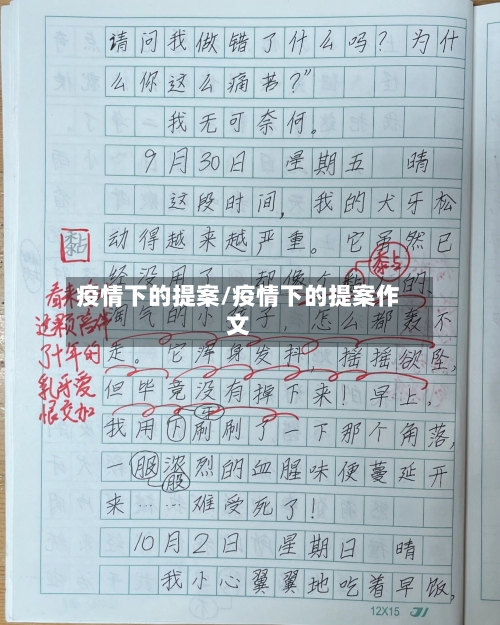 请问我做错了什么吗？为什
么你这么痛苦？”
我无可奈何。
9月30日 星期五 晴
这段时间，我的犬牙松
动得越来越严重。它虽然已
黏
黏占
疫情下的提案/疫情下的提案作
文
怎么都轰不
走。它浑身发抖，摇摇欲坠，
但毕竟没有掉下来！早上，
牙
我用下刷刷了一下那个角落，
一股浓烈的血腥味便蔓延开
股
来……难受死了！
10月2日 星期日 晴
我小心翼翼地吃着早饭，
看来
这颗陪伴
了十年的
乳牙爱
恨交加
12X15